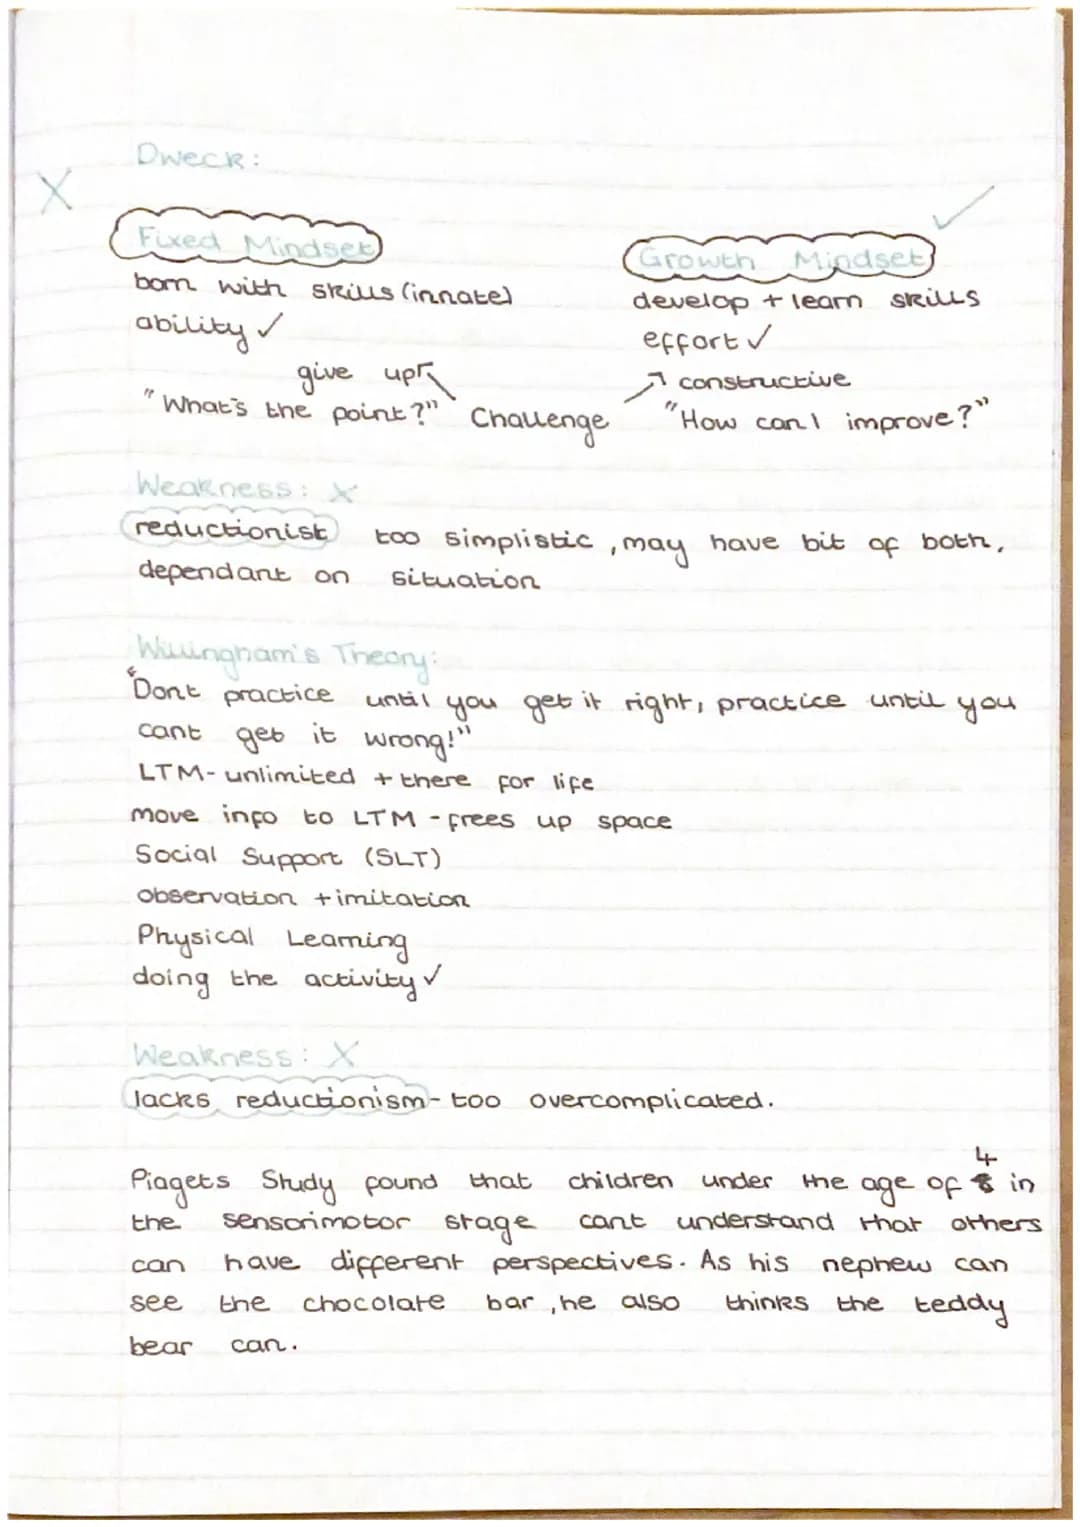 Dweck:
X
✓
Fixed Mindset
born with skills (innate)
ability ✓
give up
"What's the point?"
Challenge
Growth Mindset
develop + learn skills
effort ✓
constructive
"How can I improve?"
Weakness: X
reductionist too simplistic, may have bit of both,
dependant on situation
Willingham's Theory:
"Dont practice until you get it right, practice until you
cant get it wrong!"
LTM- unlimited + there for life
move info to LTM - frees up space
Social Support (SLT)
observation + imitation
Physical Learning
doing the activity ✓
Weakness: X
lacks reductionism- too overcomplicated.
Piagets Study found that children under the age of 4 in
the sensorimotor stage cant understand that others
can have different perspectives. As his nephew can
see the chocolate bar, he also thinks the teddy
bear can.